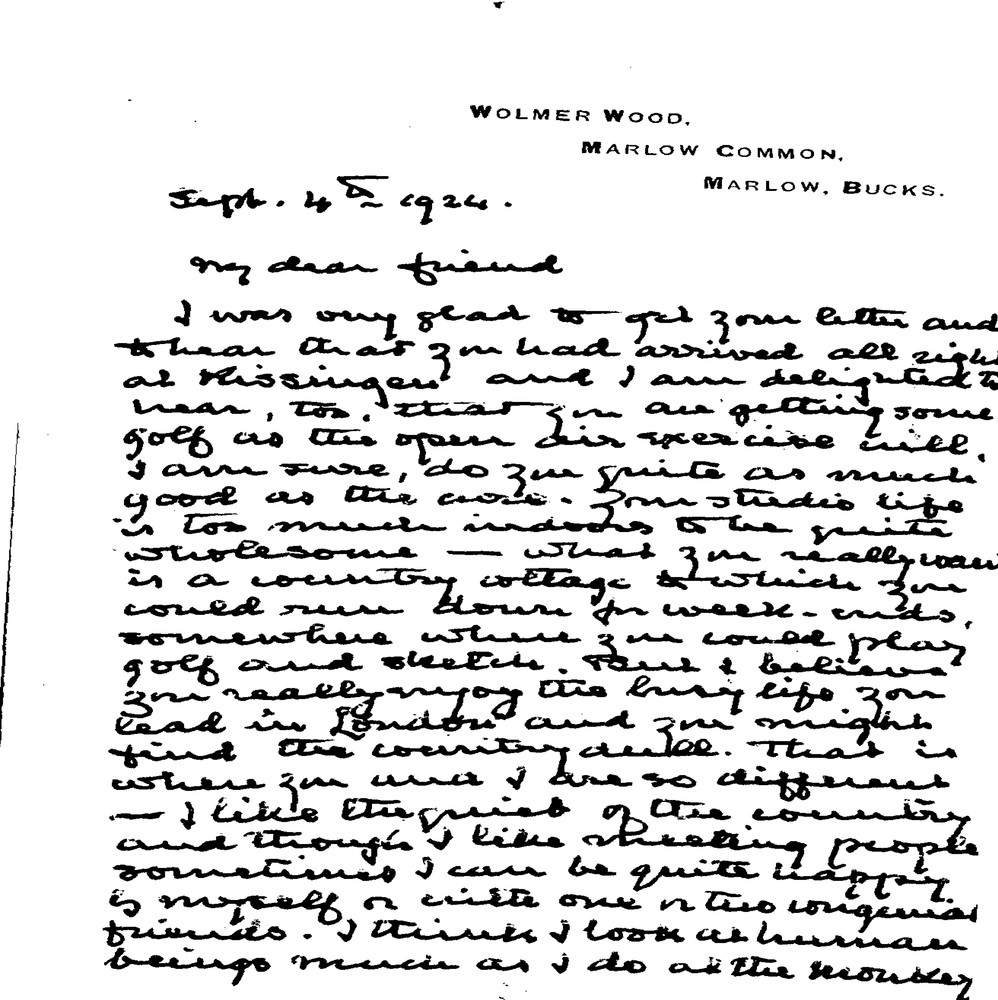 WOLMER WOOD,
MARLOW COMMON,
MARLOW, BUCKS.
Sept. 4th 1924.
My dear friend
I was very glad to get your letter and
to hear that you had arrived all righ
at Kissingen and I am delighted to
hear, too, that you are getting some
golf as the open air exercise will,
I am sure, do you quite as much
good as the cure. Your studio life
is too much indoors to be quite
wholesome — what you really want
is a country cottage to which you
could run down for week-ends,
somewhere where you could play
golf and sketch. But I believe
you really enjoy the busy life you
lead in London and you might
find the country dull. That is
where you and I are so different
— I like the quiet of the country
and though I like meeting people
sometimes I can be quite happy
by myself or with one or two congenial
friends. I think I look at human
beings much as I do at the monkey